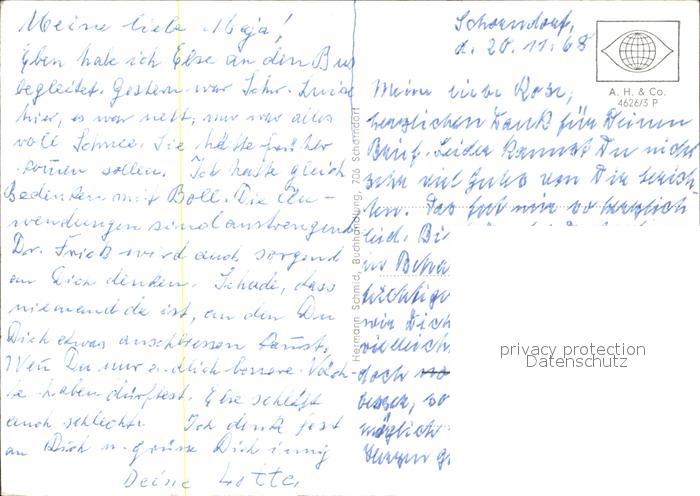 Meine liebe Maja!
Eben habe ich Else an den Bus
begleitet. Gestern war Schw. Luise
hier, es war nett, nur war alles
voll Schnee. Sie hätte früher
komen sollen. Ich hatte gleich
Bedenken mit Boll. Die An-
wendungen sind anstrengend
Dr. Frick wird auch sorgend
an Dich denken. Schade, dass
niemand da ist, an den Du
Dich etwas anschliessen kannst.
Wen Du nur endlich bessere Näch-
te haben dürftest. Else schläft
auch schlecht. Ich denk fest
an Dich u. grüsse Dich innig
Deine Lotte.
Hermann Schmid, Buchhandlung, 706 Schorndorf
Schorndorf,
d. 20.11.68
A. H. & Co.
4626/3 P
Meine liebe Rose,
herzlichen Dank für Deinen
Brief. Leider kannst Du nicht
sehr viel Gutes von Dir berich-
ten. Das tut mir so herzlich
leid. Bi
ins Beha
wir Dich
vielleich
doch
besser, so
möglich
Herzen g
privacy protection
Datenschutz